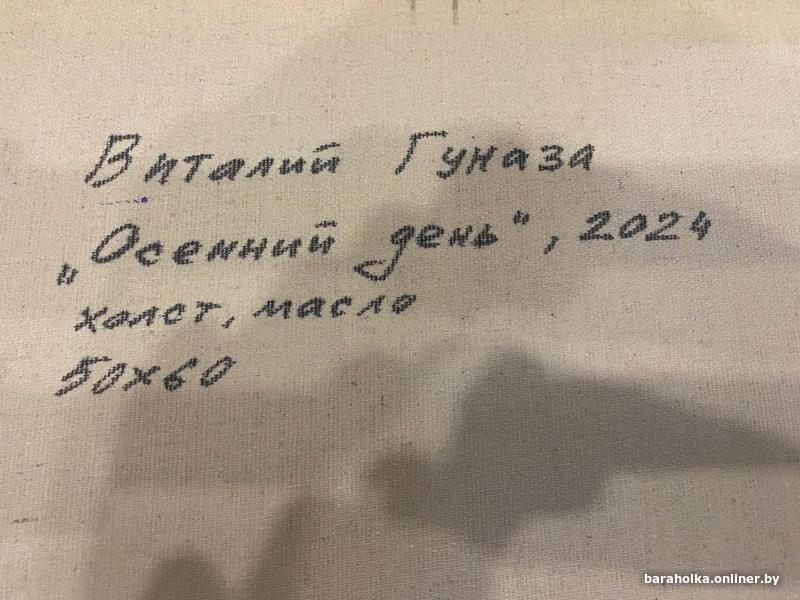 Виталий Гуназа
„Осенний день", 2024
холст, масло
50х60
baraholka.onliner.by